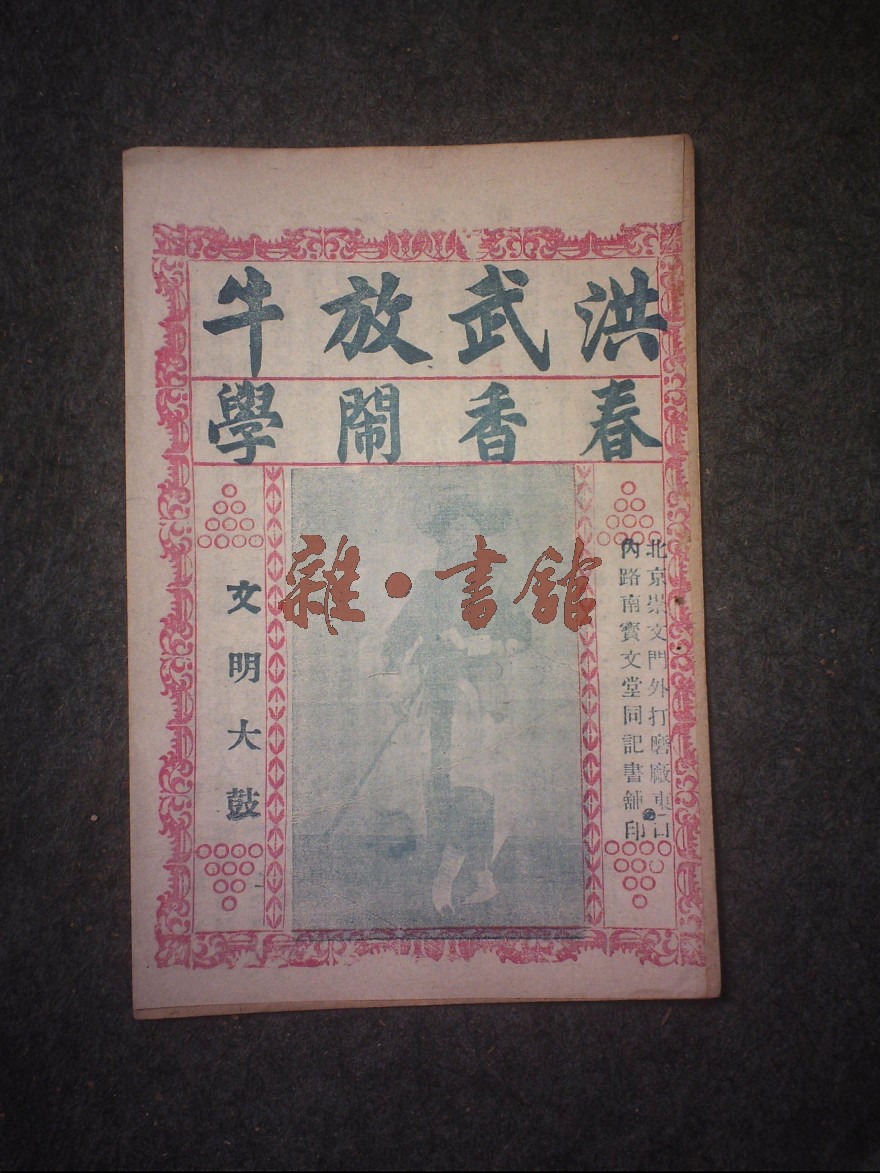 洪武放牛
春香鬧學
北京崇文門外打磨廠東口
內路南寶文堂同記書舖印
文明大鼓
雜·書館